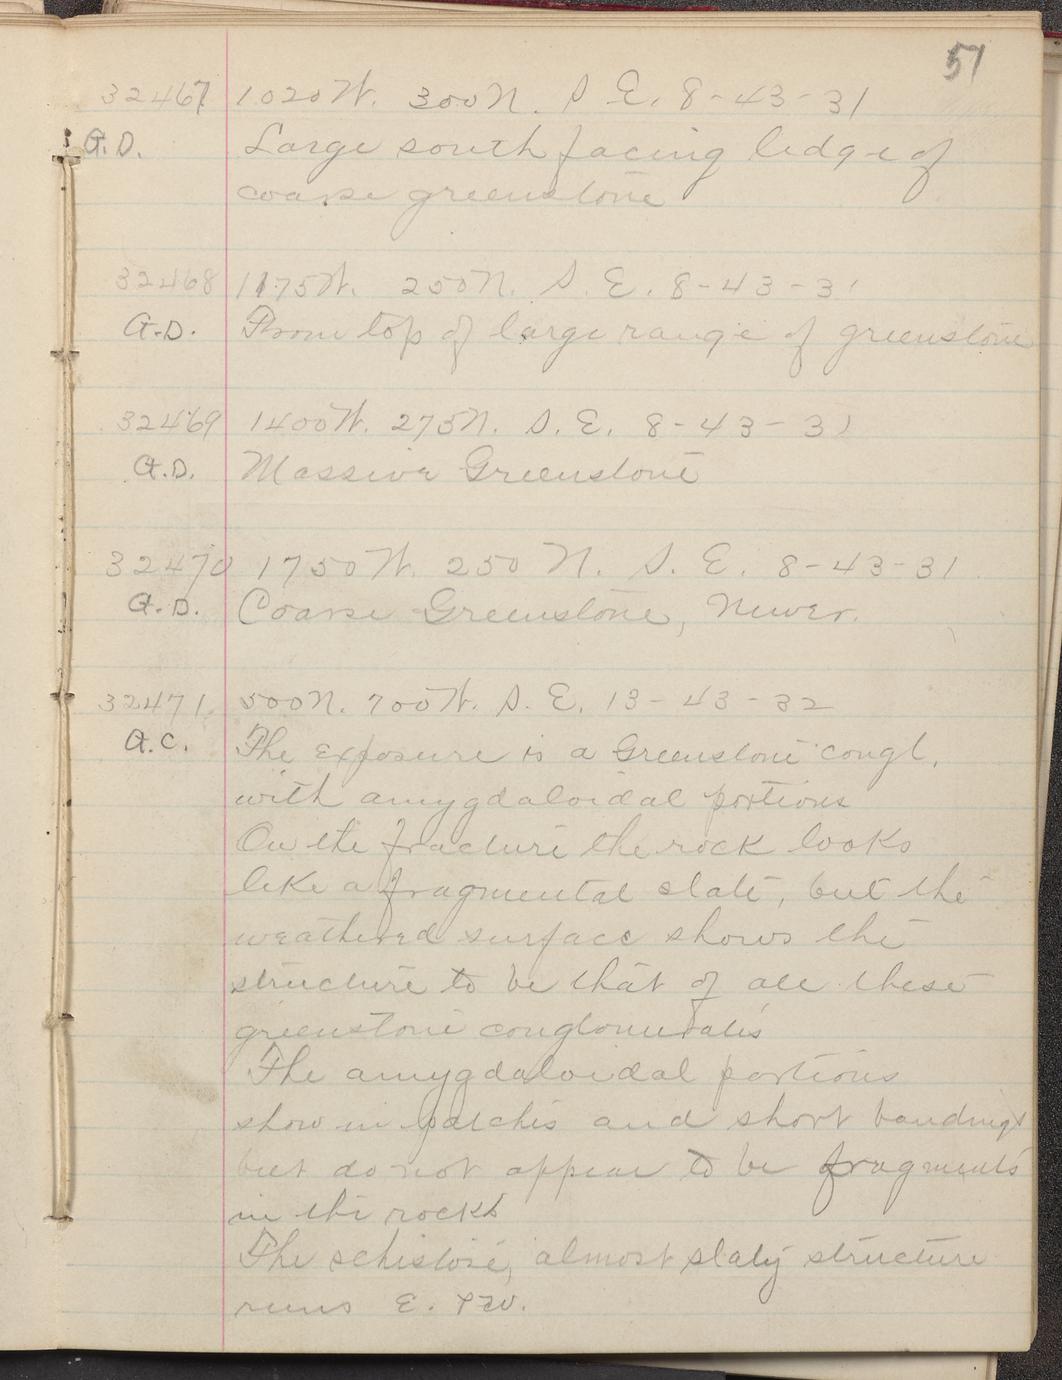 51
32467 1020 W. 300 N. S. E. 8-43-31
G.D. Large south facing ledge of
coarse greenstone
32468 1175 W. 250 N. S. E. 8-43-31
G.D. From top of large range of greenstone
32469 1400 W. 275 N. S. E. 8-43-31
G.D. Massive Greenstone
32470 1750 W. 250 N. S. E. 8-43-31
G.D. Coarse Greenstone, Newer.
32471 500 N. 700 W. S. E. 13-43-32
G.C. The exposure is a Greenstone congl.
with amygdaloidal portions
On the fracture the rock looks
like a fragmental slate, but the
weathered surface shows the
structure to be that of all these
greenstone conglomerates
The amygdaloidal portions
show in patches and short bandings
but do not appear to be fragments
in the rocks
The schistose, almost slaty structure
runs E. & W.